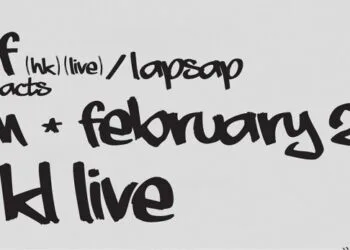 f (hk) (live) / lapsap
acts
* february 2
kl live